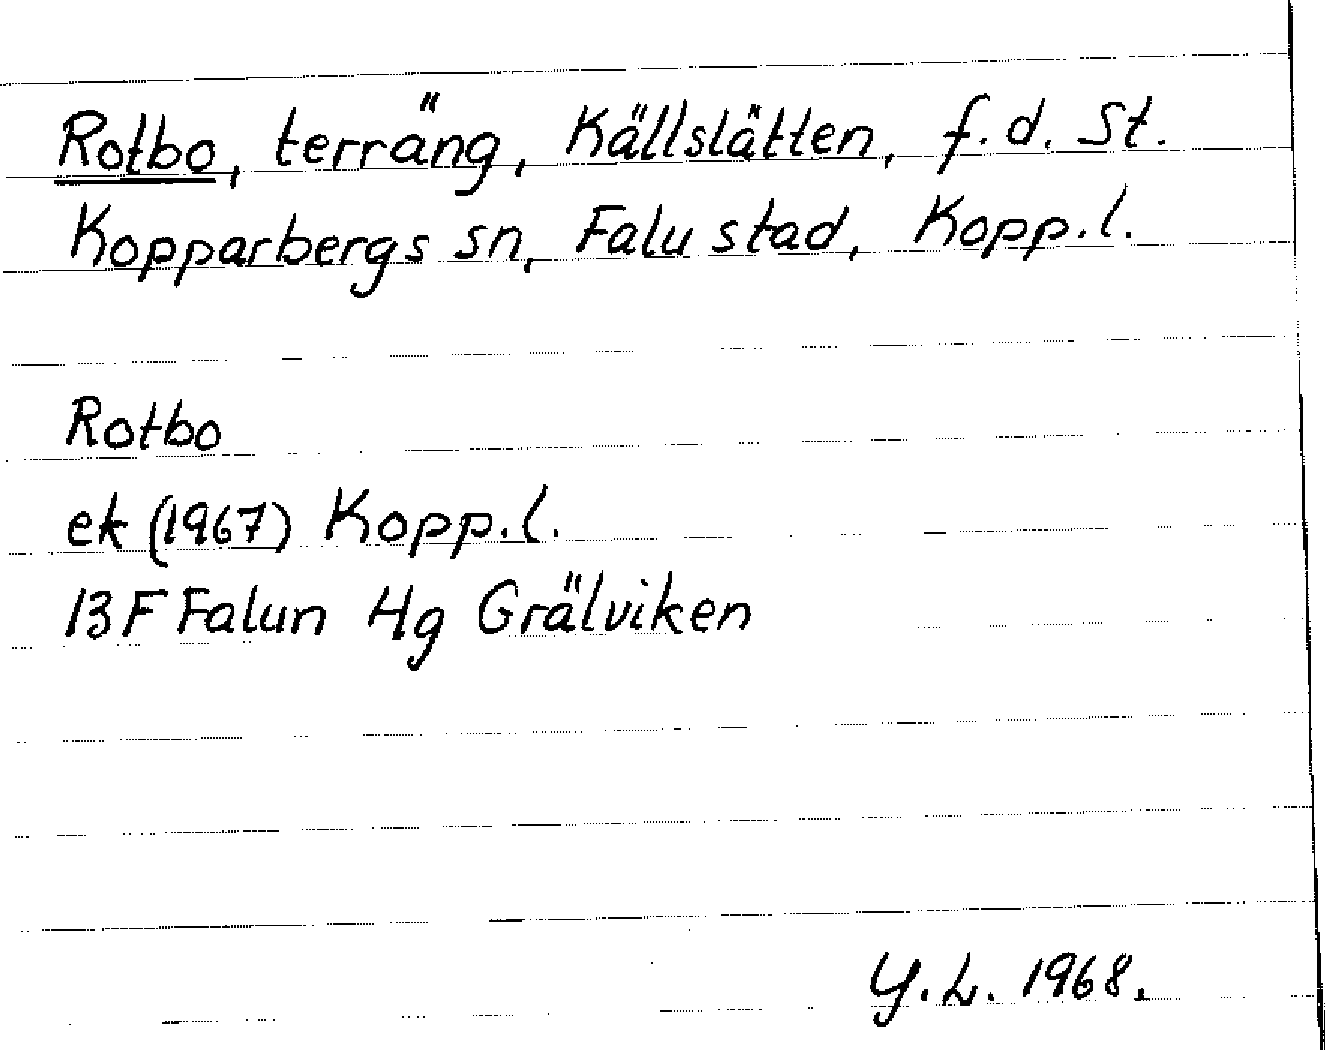 Rotbo, terräng, Källslätten, f.d. St.
Kopparbergs sn, Falu stad, Kopp.l.
Rotbo
ek (1967) Kopp.l.
13 F Falun Hg Grälviken
Y.L. 1968.